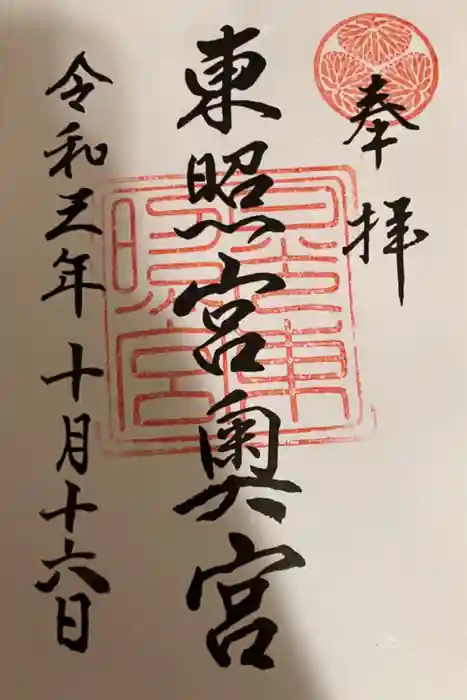 奉拝
東照宮奥宮
令和三年十月十六日